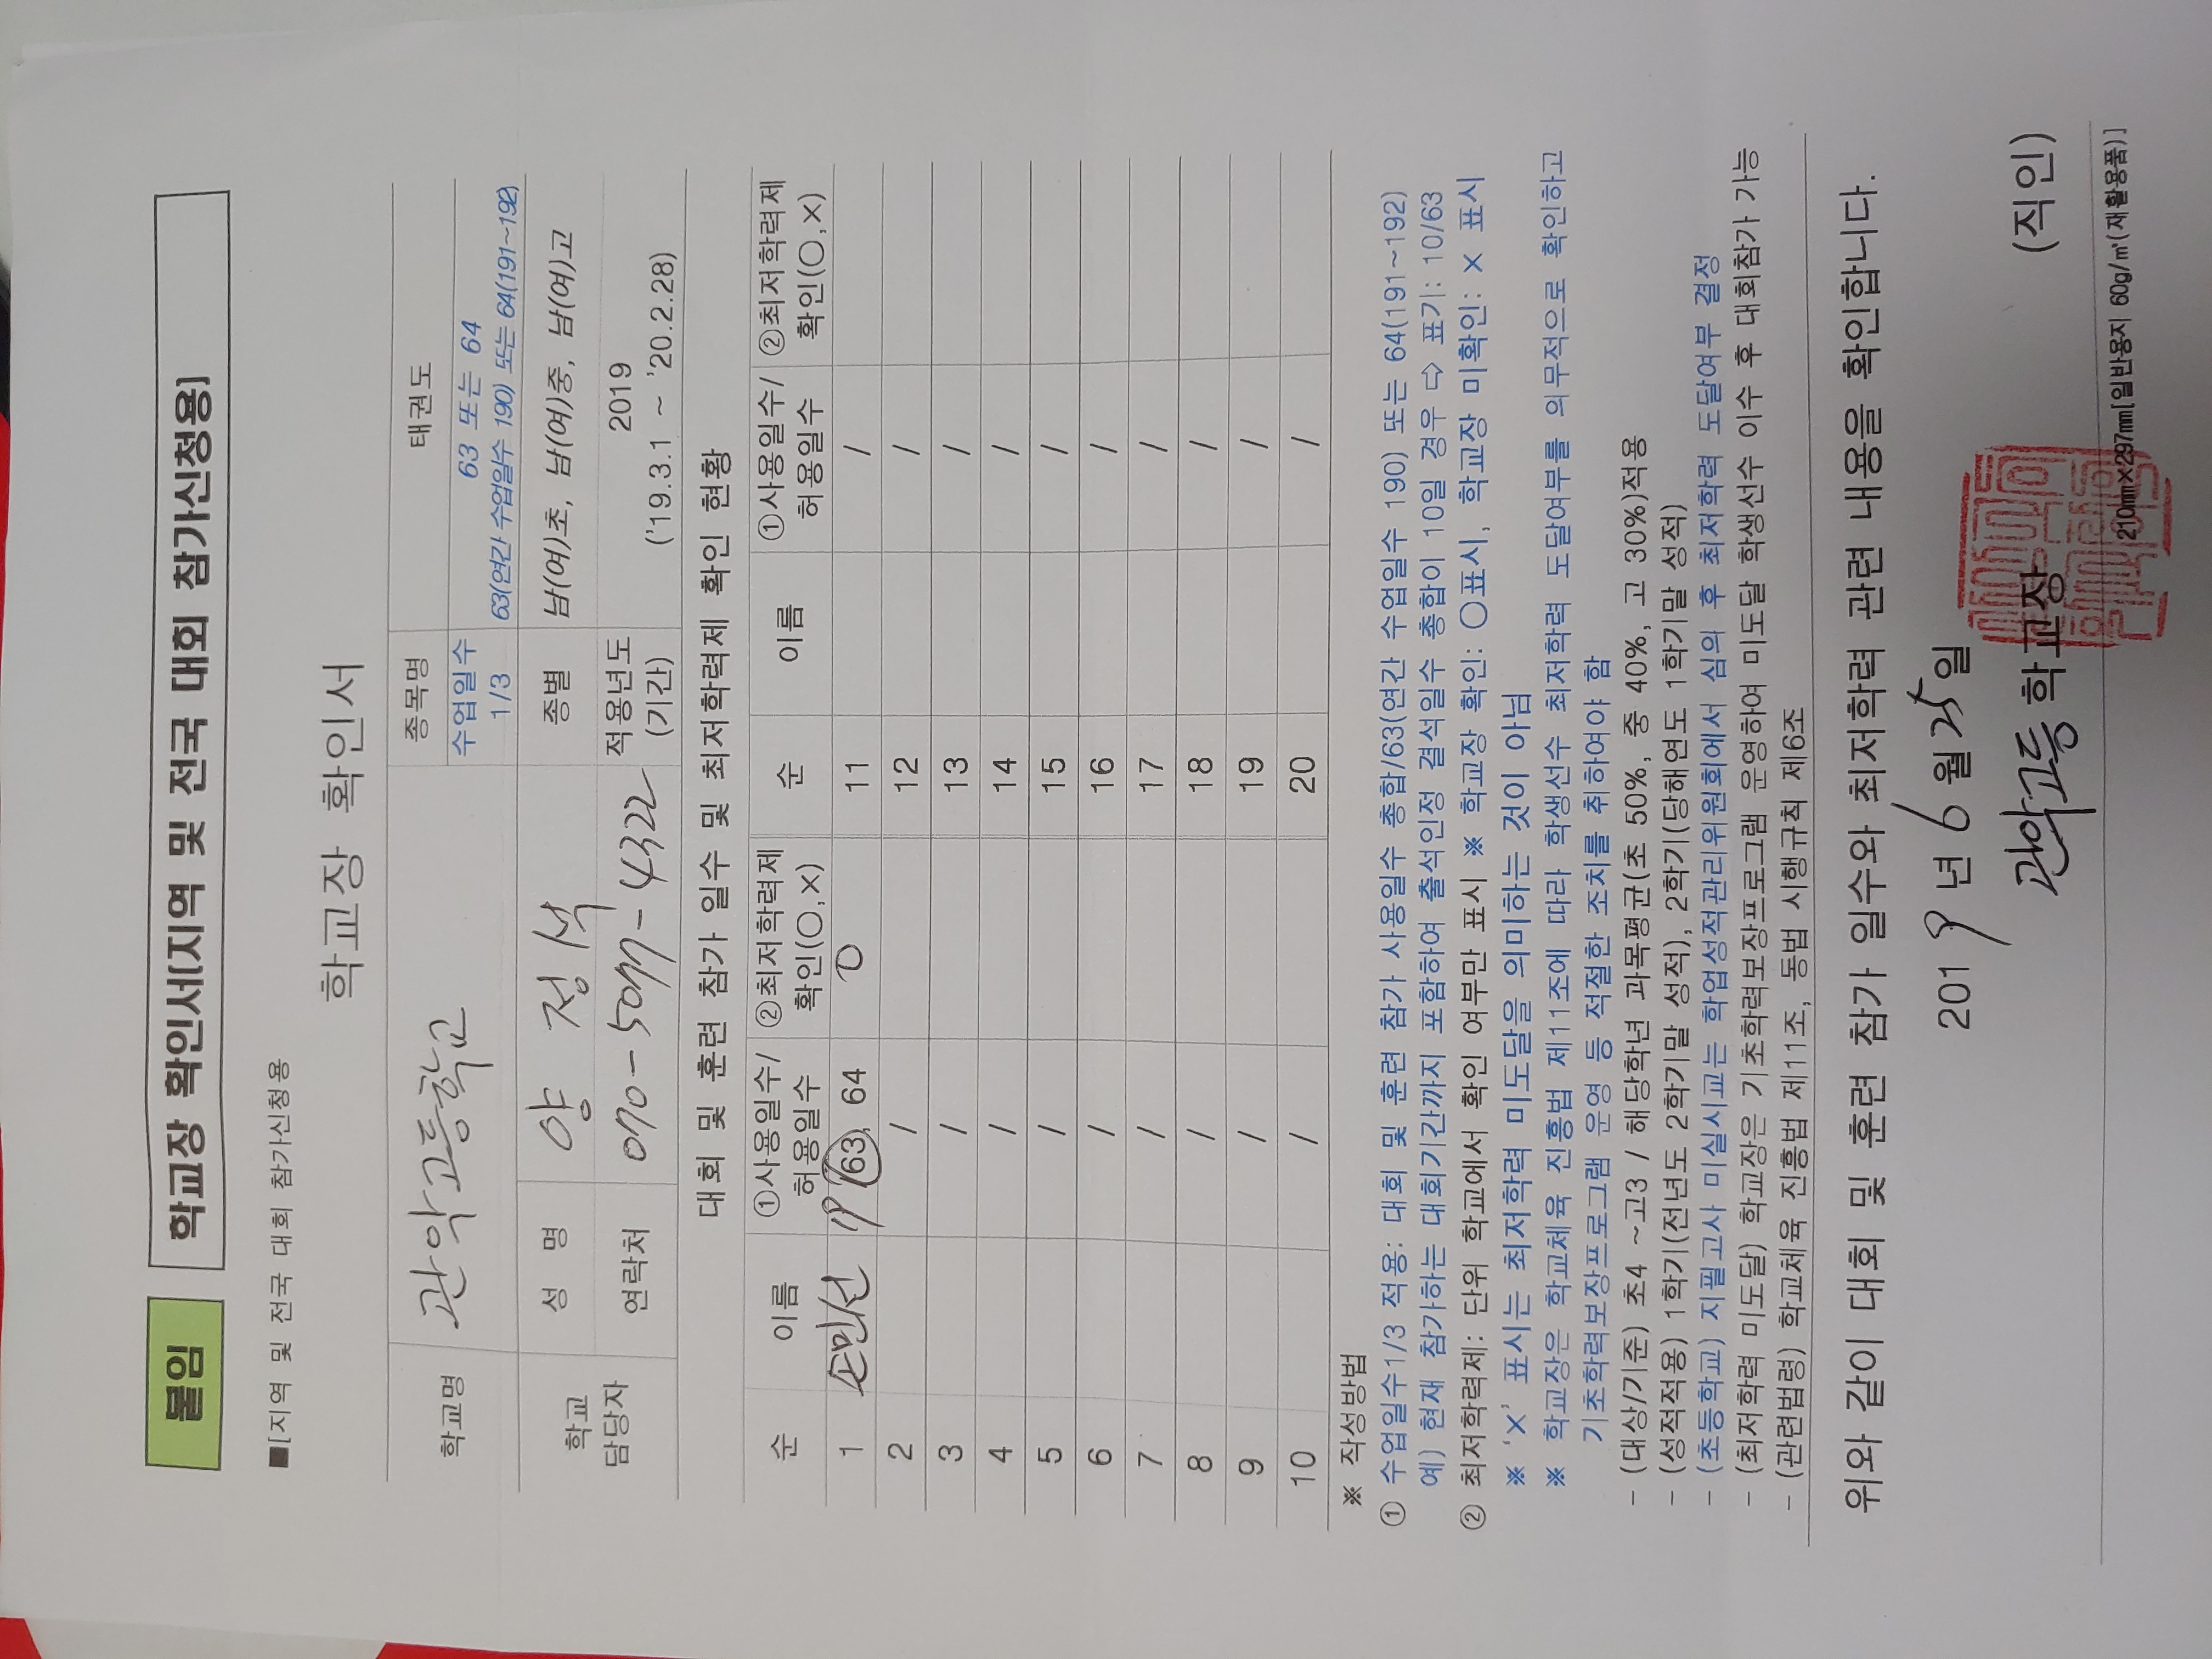 붙임 학교장 확인서(지역 및 전국 대회 참가신청용)
■[지역 및 전국 대회 참가신청용
학교장 확인서
학교명 관악고등학교 종목명 태권도
수업일수 1/3 63 또는 64
63(연간 수업일수 190) 또는 64(191~192)
학교 담당자 성 명 양 정 석 종별 남(여)초, 남(여)중, 남(여)고
연락처 070-5077-4322 적용년도 (기간) 2019
('19.3.1 ~ '20.2.28)
대회 및 훈련 참가 일수 및 최저학력제 확인 현황
순 이름 ①사용일수/허용일수 ②최저학력제 확인(○,×) 순 이름 ①사용일수/허용일수 ②최저학력제 확인(○,×)
1 손민선 63, 64 ○ 11 /
2 / 12 /
3 / 13 /
4 / 14 /
5 / 15 /
6 / 16 /
7 / 17 /
8 / 18 /
9 / 19 /
10 / 20 /
※ 작성방법
① 수업일수1/3 적용: 대회 및 훈련 참가 사용일수 총합/63(연간 수업일수 190) 또는 64(191~192)
예) 현재 참가하는 대회기간까지 포함하여 출석인정 결석일수 총합이 10일 경우 ⇨ 표기: 10/63
② 최저학력제: 단위 학교에서 확인 여부만 표시 ※ 학교장 확인: ○표시, 학교장 미확인: × 표시
※ '×' 표시는 최저학력 미도달을 의미하는 것이 아님
※ 학교장은 학교체육 진흥법 제11조에 따라 학생선수 최저학력 도달여부를 의무적으로 확인하고
기초학력보장프로그램 운영 등 적절한 조치를 취하여야 함
- (대상/기준) 초4 ~고3 / 해당학년 과목평균(초 50%, 중 40%, 고 30%)적용
- (성적적용) 1학기(전년도 2학기말 성적), 2학기(당해연도 1학기말 성적)
- (초등학교) 지필고사 미실시교는 학업성적관리위원회에서 심의 후 최저학력 도달여부 결정
- (최저학력 미도달) 학교장은 기초학력보장프로그램 운영하여 미도달 학생선수 이수 후 대회참가 가능
- (관련법령) 학교체육 진흥법 제11조, 동법 시행규칙 제6조
위와 같이 대회 및 훈련 참가 일수와 최저학력 관련 내용을 확인합니다.
2019 년 6 월 25 일
관악고등 학교장 (직인)
210㎜×297㎜[일반용지 60g/㎡(재활용품)]